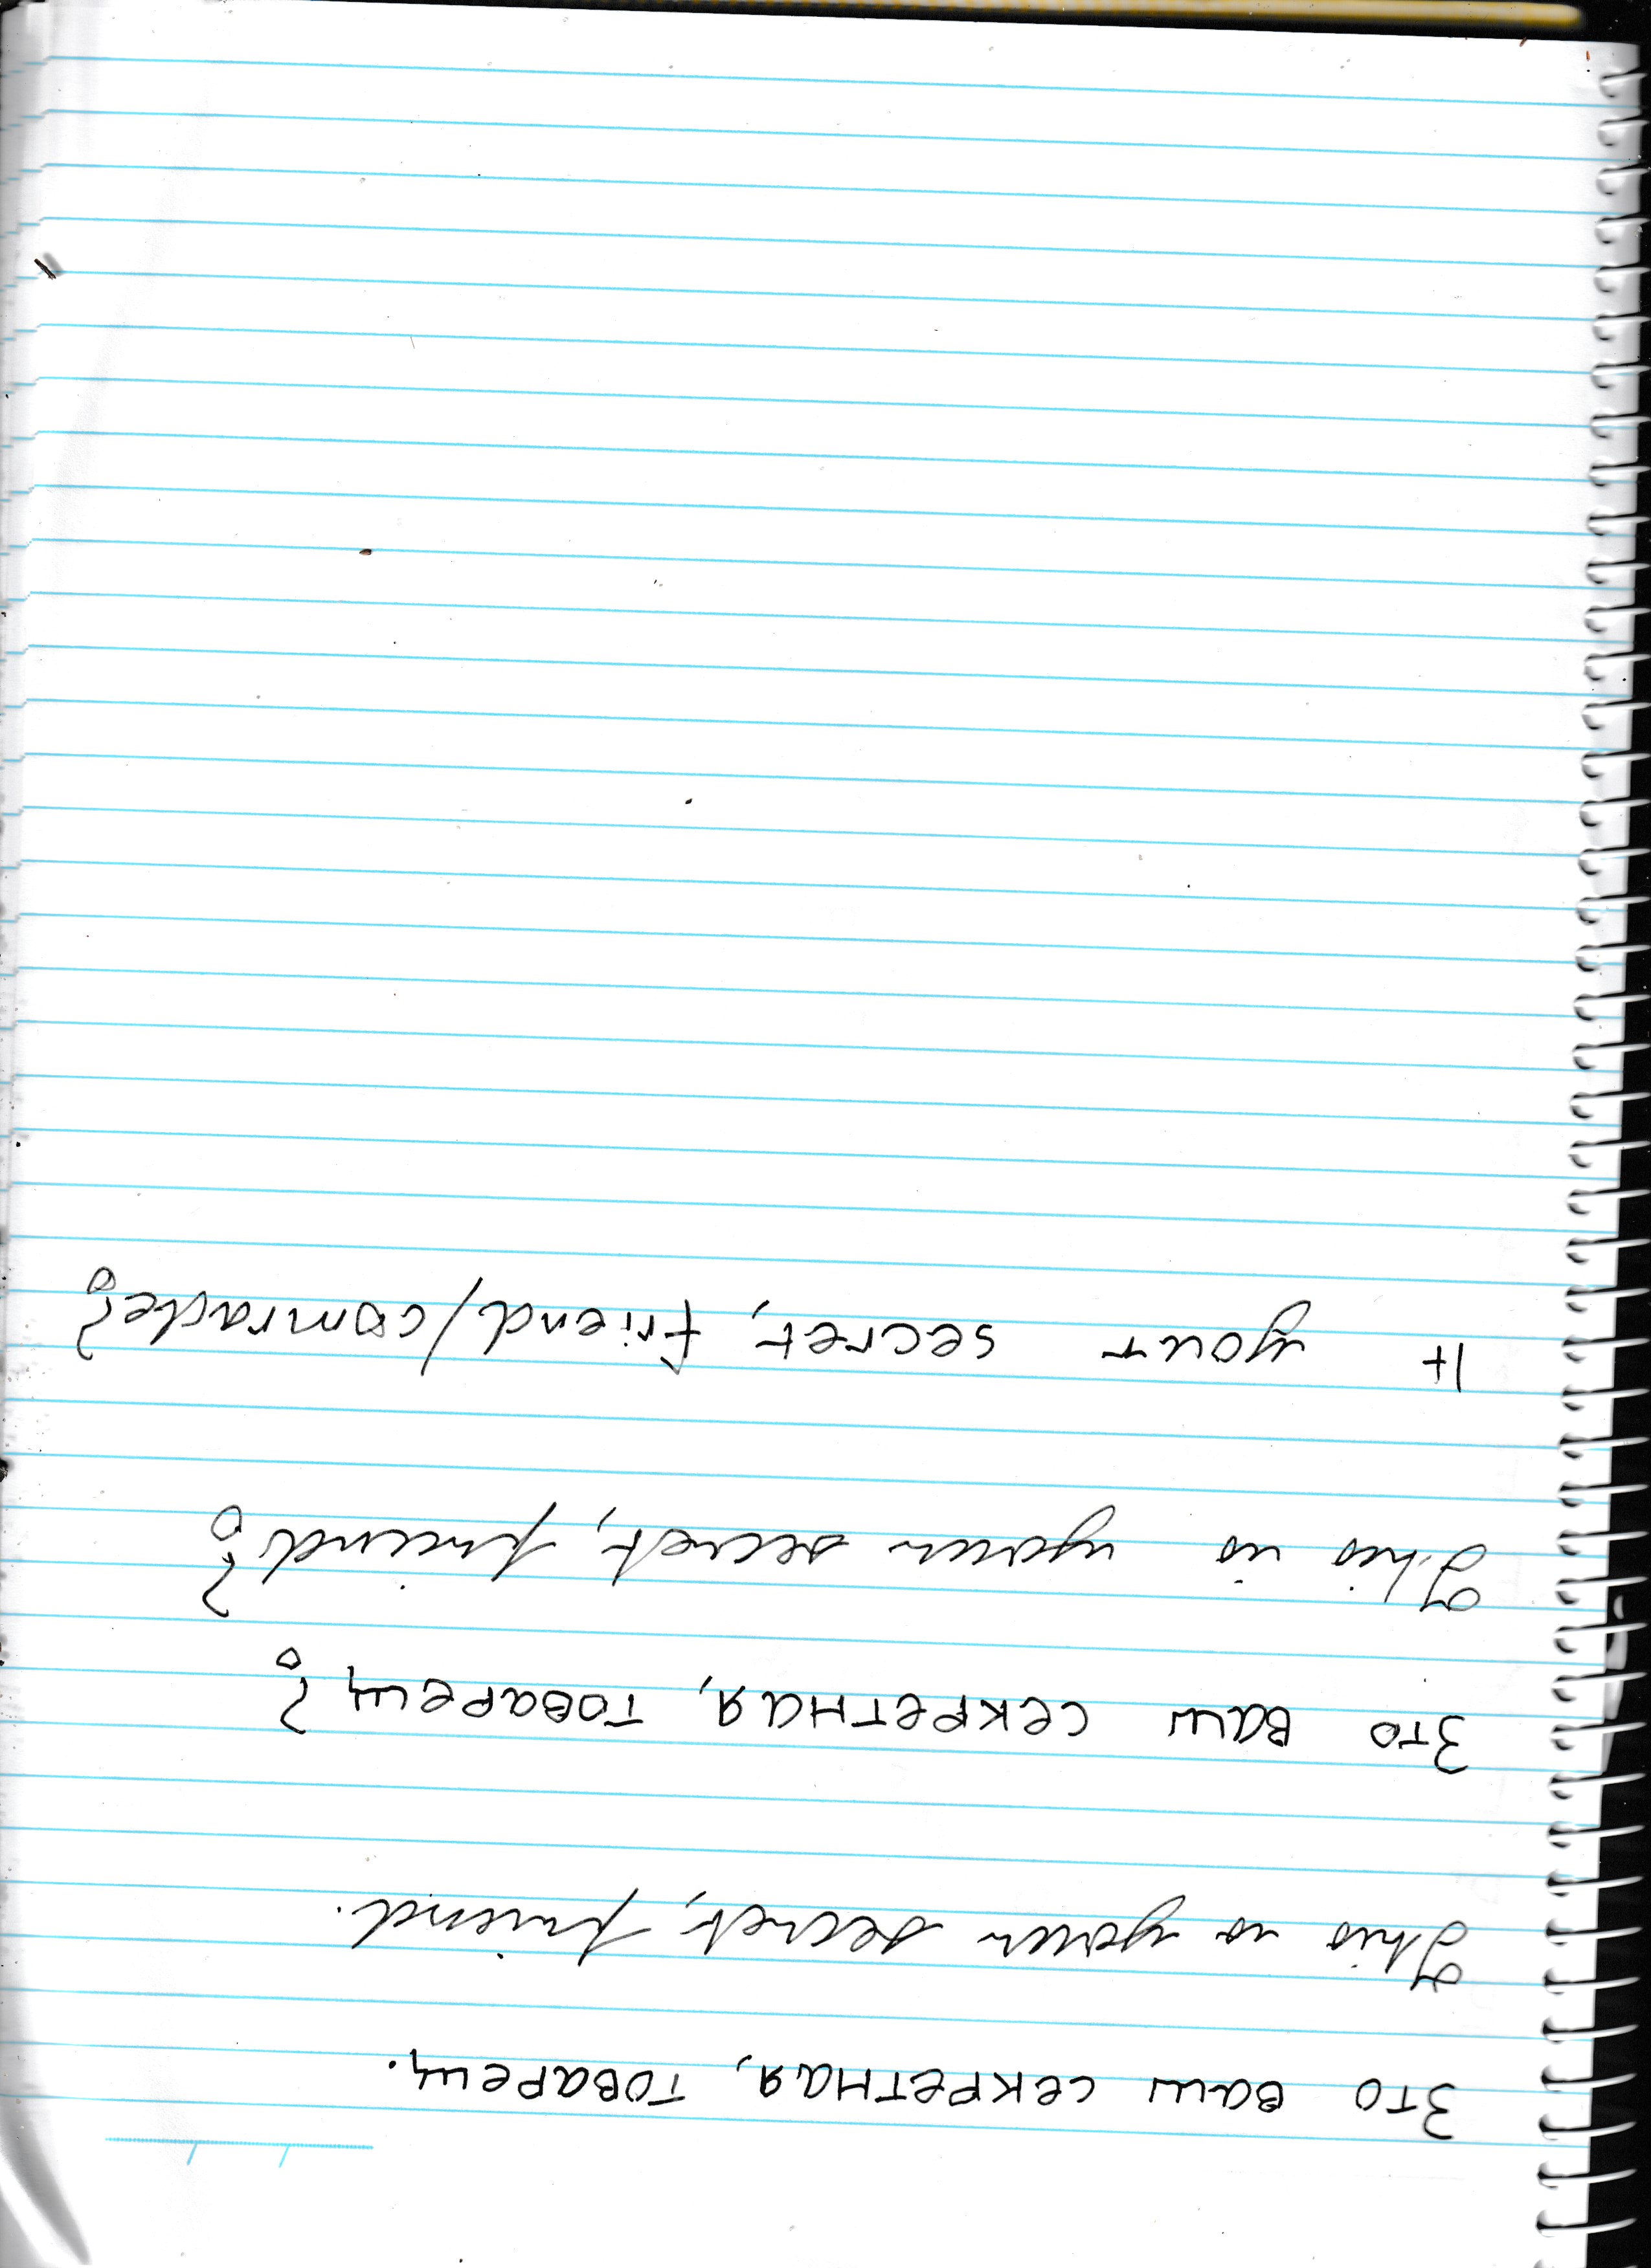 Зто ваш секретная, товарещ.
This is your secret, friend.
Зто ваш секретная, товарещ?
This is your secret, friend?
It your secret, friend/comrade?